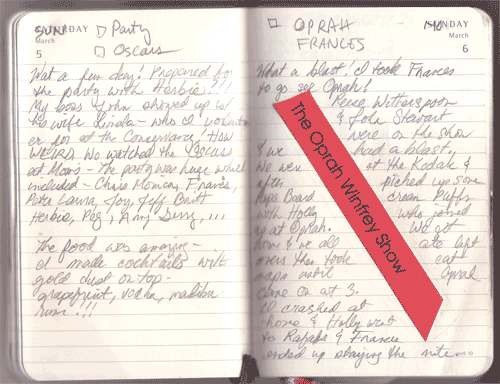 SUNDAY
March
5
□ Party
□ Oscars
Wat a fun day! Prepared for
the party with Herbie!!!
My boss John showed up w/
his wife Linda - who I volunte
er for at the Conservancy! How
WEIRD. We watched the Oscars
at - The party was huge which
included - Chris Moncay, Frances,
Pete, Laura, Joy, Jeff, Britt
Herbie, Peg, Amy Perry,...
The food was amazing -
I made cocktails with
gold dust on top -
grapefruit, vodka, malibu
rum!!!
□ OPRAH
FRANCES
SUNDAY
March
6
What a blast! I took Frances
to go see Oprah!
Reese Witherspoon
& Jon Stewart
were on the show
& we had a blast.
We were at the Kodak &
after picked up some
Papa Beard cream Puffs
with Holly who joined
us at Oprah. We got
home & we all ate left
overs then took cat
naps until Oprah
came on at 3.
I crashed at
home & Holly went
to Rafaels & Francis
ended up staying the nite
The Oprah Winfrey Show